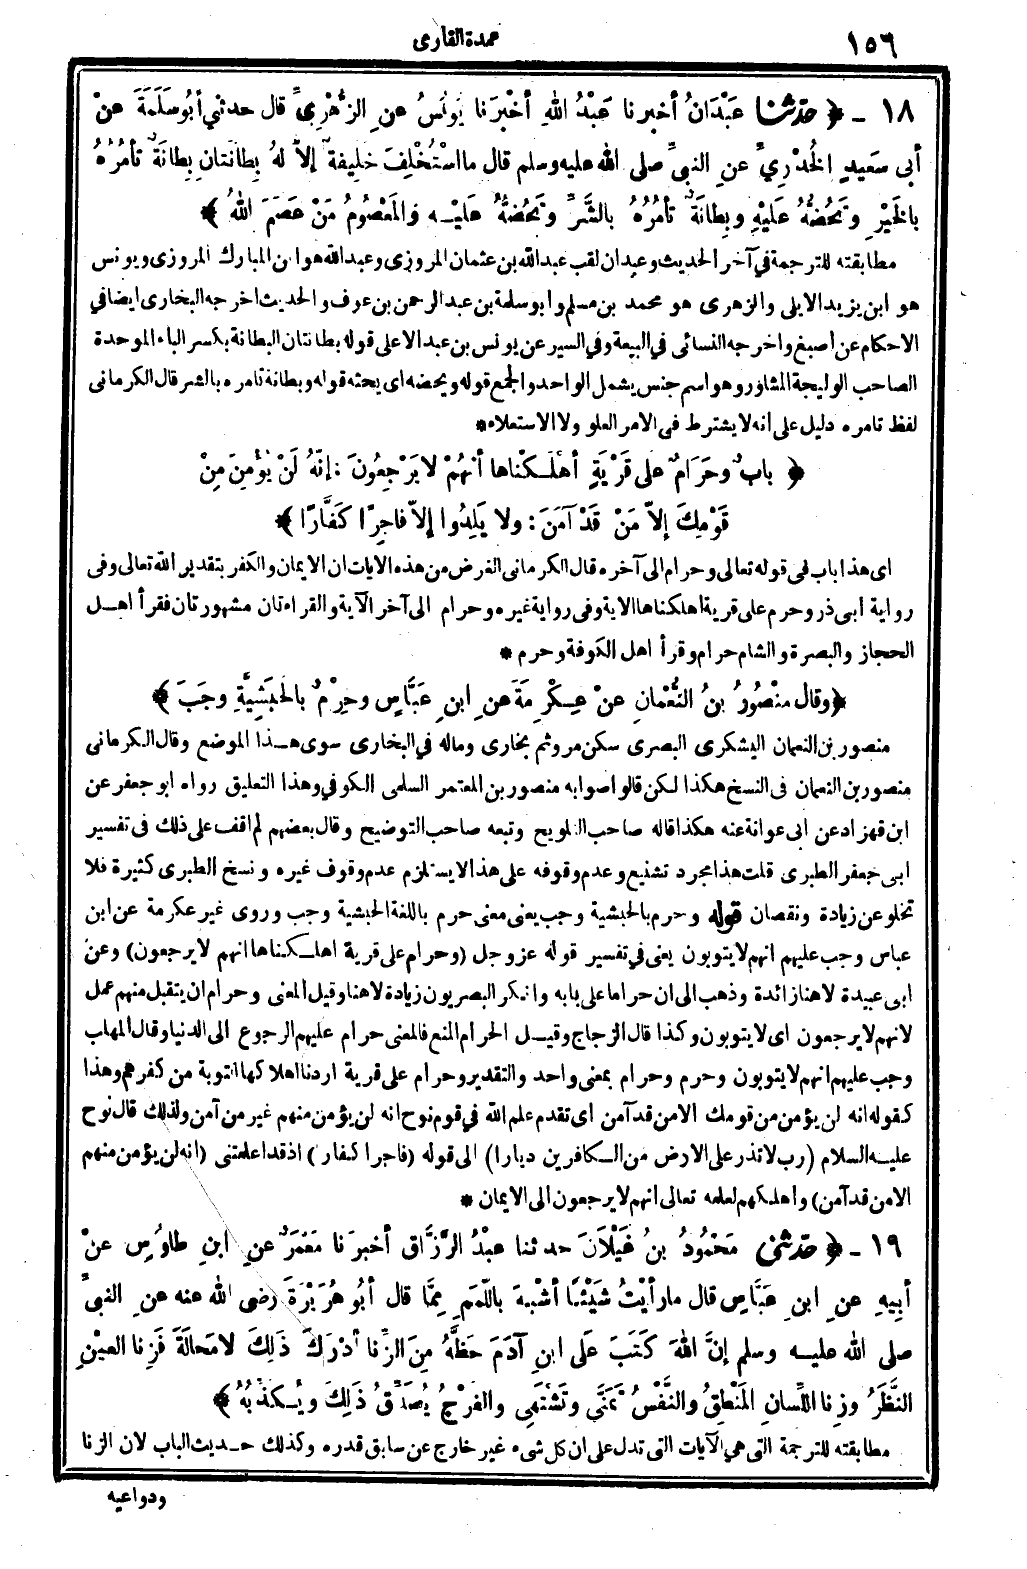 ١٥٦
عمدة القارى
١٨ ـ ﴿ حدثنا عَبْدَانُ أخبرنا عَبْدُ اللهِ أخْبَرَنا يُونُسُ عنِ الزُّهْرِيِّ قال حدثني أبُو سَلَمَةَ عنْ
أبى سَعِيدٍ الخُدْرِيِّ عنِ النبيِّ صلى الله عليه وسلم قال ما اسْتُخْلِفَ خَلِيفَةٌ إلاَّ لهُ بِطانَتانِ بِطانَةٌ تأمُرُهُ
بالخَيْرِ وتَحُضُّهُ عَلَيْهِ وبِطانَةٌ تأمُرُهُ بالشَّرِّ وتَحُضُّهُ عَلَيْـه والمَعْصُومُ مَنْ عَصَمَ اللهُ ﴾
مطابقته للترجمة في آخر الحديث وعبدان لقب عبدالله بن عثمان المروزى وعبدالله هو ابن المبارك المروزى ويونس
هو ابن يزيد الايلى والزهرى هو محمد بن مسلم وابو سلمة بن عبد الرحمن بن عوف والحديث اخرجه البخارى ايضا في
الاحكام عن أصبغ واخرجه النسائى في البيعة وفي السير عن يونس بن عبد الاعلى قوله بطانتان البطانة بكسر الباء الموحدة
الصاحب الوليجة المشاور وهو اسم جنس يشمل الواحد والجمع قوله ويحضه اى يحثه قوله وبطانة تامره بالشر قال الكرمانى
لفظ تامره دليل على انه لا يشترط فى الامر العلو ولا الاستعلاء *
﴿ بابٌ وحَرَامٌ على قَرْيَةٍ أهْلَـكْناها أنهُمْ لا يَرْجِعُونَ : إنَّهُ لَنْ يُؤْمِنَ مِنْ
قَوْمِكَ إلاَّ مَنْ قَدْ آمَنَ : ولا يَلِدُوا إلاَّ فاجِرًا كَفَّارًا ﴾
اى هذا باب فى قوله تعالى وحرام الى آخره قال الكرمانى الغرض من هذه الايات ان الايمان والكفر بتقدير الله تعالى وفى
رواية أبى ذر وحرم على قرية اهلكناها الاية وفى رواية غيره وحرام الى آخر الآية والقراءتان مشهورتان فقرأ اهـل
الحجاز والبصرة والشام حرام وقرأ اهل الكوفة وحرم *
﴿ وقال منْصُورُ بنُ النُّعْمانِ عنْ عِـكْرِمَةَ عنِ ابنِ عَبَّاسٍ وحِرْمٌ بالحَبَشِيَّةِ وجَبَ ﴾
منصور بن النعمان اليشكرى البصرى سكن مرو ثم بخارى وماله في البخارى سوى هـذا الموضع وقال الكرمانى
منصور بن النعمان فى النسخ هكذا لكن قالوا صوابه منصور بن المعتمر السلمى الكوفي وهذا التعليق رواه ابو جعفر عن
ابن قهزاد عن ابى عوانة عنه هكذا قاله صاحب التلويح وتبعه صاحب التوضيح وقال بعضهم لم اقف على ذلك فى تفسير
ابى جعفر الطبرى قلت هذا مجرد تشنيع وعدم وقوفه على هذا لا يستلزم عدم وقوف غيره ونسخ الطبرى كثيرة فلا
تخلو عن زيادة ونقصان قوله وحرم بالحبشية وجب يعنى معنى حرم باللغة الحبشية وجب وروى غير عكرمة عن ابن
عباس وجب عليهم انهم لا يتوبون يعنى في تفسير قوله عز وجل (وحرام على قرية اهلـكناها انهم لا يرجعون) وعن
ابى عبيدة لا هنا زائدة وذهب الى ان حراما على بابه وانكر البصريون زيادة لا هنا وقيل المعنى وحرام ان يتقبل منهم عمل
لانهم لا يرجعون اى لا يتوبون وكذا قال الزجاج وقيـل الحرام المنع فالمعنى حرام عليهم الرجوع الى الدنيا وقال المهلب
وجب عليهم انهم لا يتوبون وحرم وحرام بمعنى واحد والتقدير وحرام على قرية اردنا اهلاكها التوبة من كفرهم وهذا
كقوله انه لن يؤمن من قومك الا من قد آمن اى تقدم علم الله في قوم نوح انه لن يؤمن منهم غير من آمن ولذلك قال نوح
عليـه السلام (رب لا تذر على الارض من الـكافرين ديارا) الى قوله (فاجرا كفارا) اذ قد اعلمتنى (انه لن يؤمن منهم
الا من قد آمن) واهلكهم لعلمه تعالى انهم لا يرجعون الى الايمان *
١٩ ـ ﴿ حدثني مَحْمُودُ بنُ غَيْلاَنَ حدثنا عبْدُ الرَّزَّاقِ أخبرَنا مَعْمَرٌ عنِ ابنِ طاوُسٍ عنْ
أبِيهِ عنِ ابنِ عَبَّاسٍ قال ما رأيْتُ شَيْئًا أشْبهَ باللَّمَمِ مِمَّا قال أبُو هُرَيْرَةَ رضى الله عنه عنِ النبيِّ
صلى الله عليـه وسلم إنَّ اللهَ كَتَبَ علَى ابنِ آدَمَ حَظَّهُ مِنَ الزِّنا أدْرَكَ ذَلِكَ لا مَحالَةَ فَزِنا العيْنِ
النَّظَرُ وزِنا اللِّسانِ المَنْطِقُ والنَّفْسُ تَمَنَّى وتَشْتَهِى والفَرْجُ يُصَدِّقُ ذَلِكَ ويُـكَذِّبُهُ ﴾
مطابقته للترجمة التى هي الآيات التى تدل على ان كل شىء غير خارج عن سابق قدره وكذلك حـديث الباب لان الزنا
ودواعيه